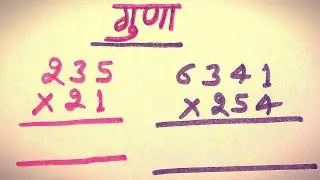 गुणा
235 6341
×21 ×254